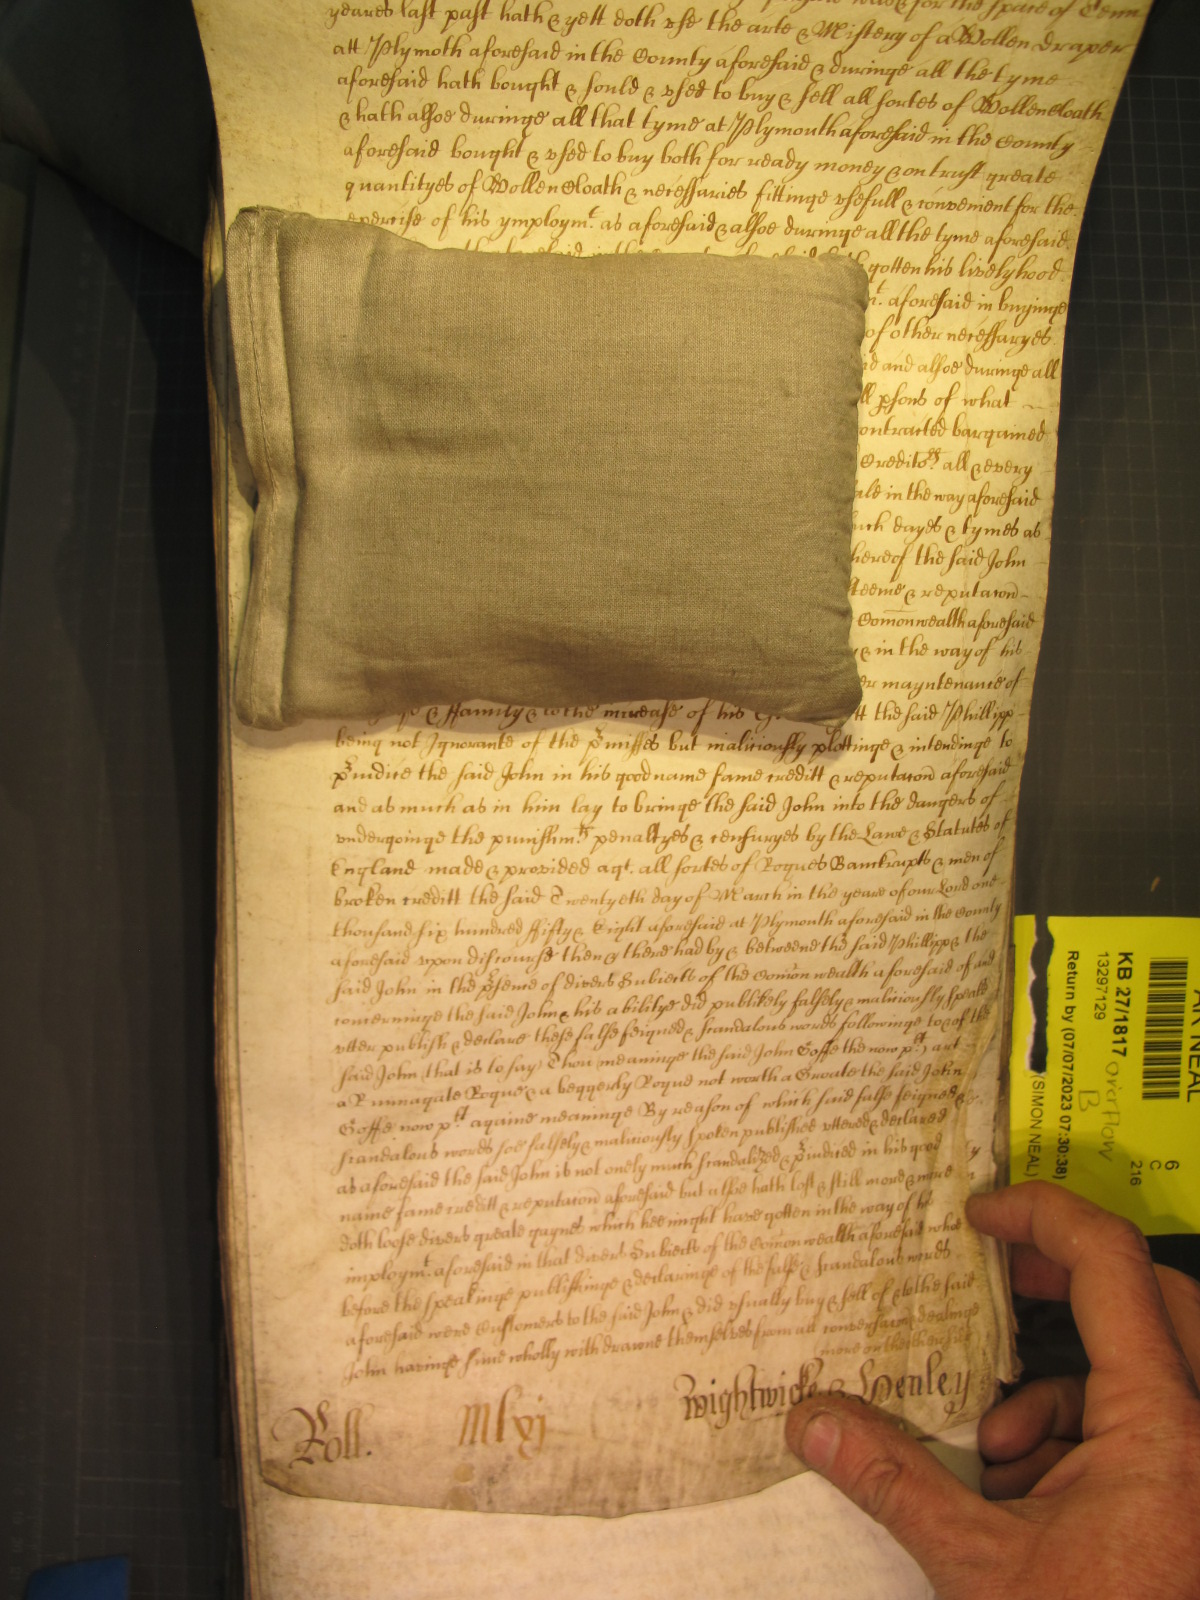 yeares last past hath & yett doth vse the arte & Mistery of a Wollen draper
att Plymoth aforesaid in the County aforesaid & duringe all the tyme
aforesaid hath bought & sould & vsed to buy & sell all sortes of Wollen Cloath
& hath alsoe duringe all that tyme at Plymouth aforesaid in the County
aforesaid bought & vsed to buy both for ready money & on trust greate
quantityes of Wollen Cloath & necessaries fittinge vsefull & convenient for the
exercise of his ymploymt. as aforesaid & alsoe duringe all the tyme aforesaid
gotten his livelyhood
aforesaid in buyinge
of other necessaryes
and alsoe duringe all
psons of what
contracted bargained
Creditors all & every
in the way aforesaid
dayes & tymes as
the said John
& reputacon
Comonwealth aforesaid
& in the way of his
mayntenance of
& ffamily & to the increase of his the said Phillipp
being not Ignorante of the pmisses but maliciously plottinge & intendinge to
piudice the said John in his good name fame creditt & reputacon aforesaid
and as much as in him lay to bringe the said John into the dangers of
vndergoinge the punishmts penaltyes & censuryes by the Lawe & Statutes of
England made & provided agt. all sortes of Rogues Banckrupts & men of
broken creditt the said Twentyeth day of March in the yeare of our Lord one
thousand six hundred ffifty & Eight aforesaid at Plymouth aforesaid in the County
aforesaid vpon discourse then & there had by & betweene the said Phillipp & the
said John in the psence of divers Subiects of the Comon wealth aforesaid of and
concerninge the said John & his abilitye did publikely falsely & maliciously speake
vtter publish & declare these false feigned & scandalous words followinge to & of the
said John (that is to say) Thou (meaninge the said John Goffe the now plt) art
a Runnagate Rogue & a beggerly Rogue not worth a Groate the said John
Goffe now plt. againe meaninge By reason of which said false feigned &
scandalous words soe falsely & maliciously spoken published vttered & declared
as aforesaid the said John is not onely much scandalized & piudiced in his good
name fame creditt & reputacon aforesaid but alsoe hath lost & still more & more
doth loose divers greate gaynes which hee might have gotten in the way of his
imploymt. aforesaid in that divers Subiects of the Comon wealth aforesaid whoe
before the speakinge publishinge & declaringe of the false & scandalous words
aforesaid were Customers to the said John & did vsually buy & sell of & to the said
John havinge since wholly withdrawne themselves from all conversacon & dealinge
Roll. Mlxj Wightwicke & Henley
AR NEAL
KB 27/1817 overflow
13297129 B
Return by (07/07/2023 07:30:38)
(SIMON NEAL)
6
C
216